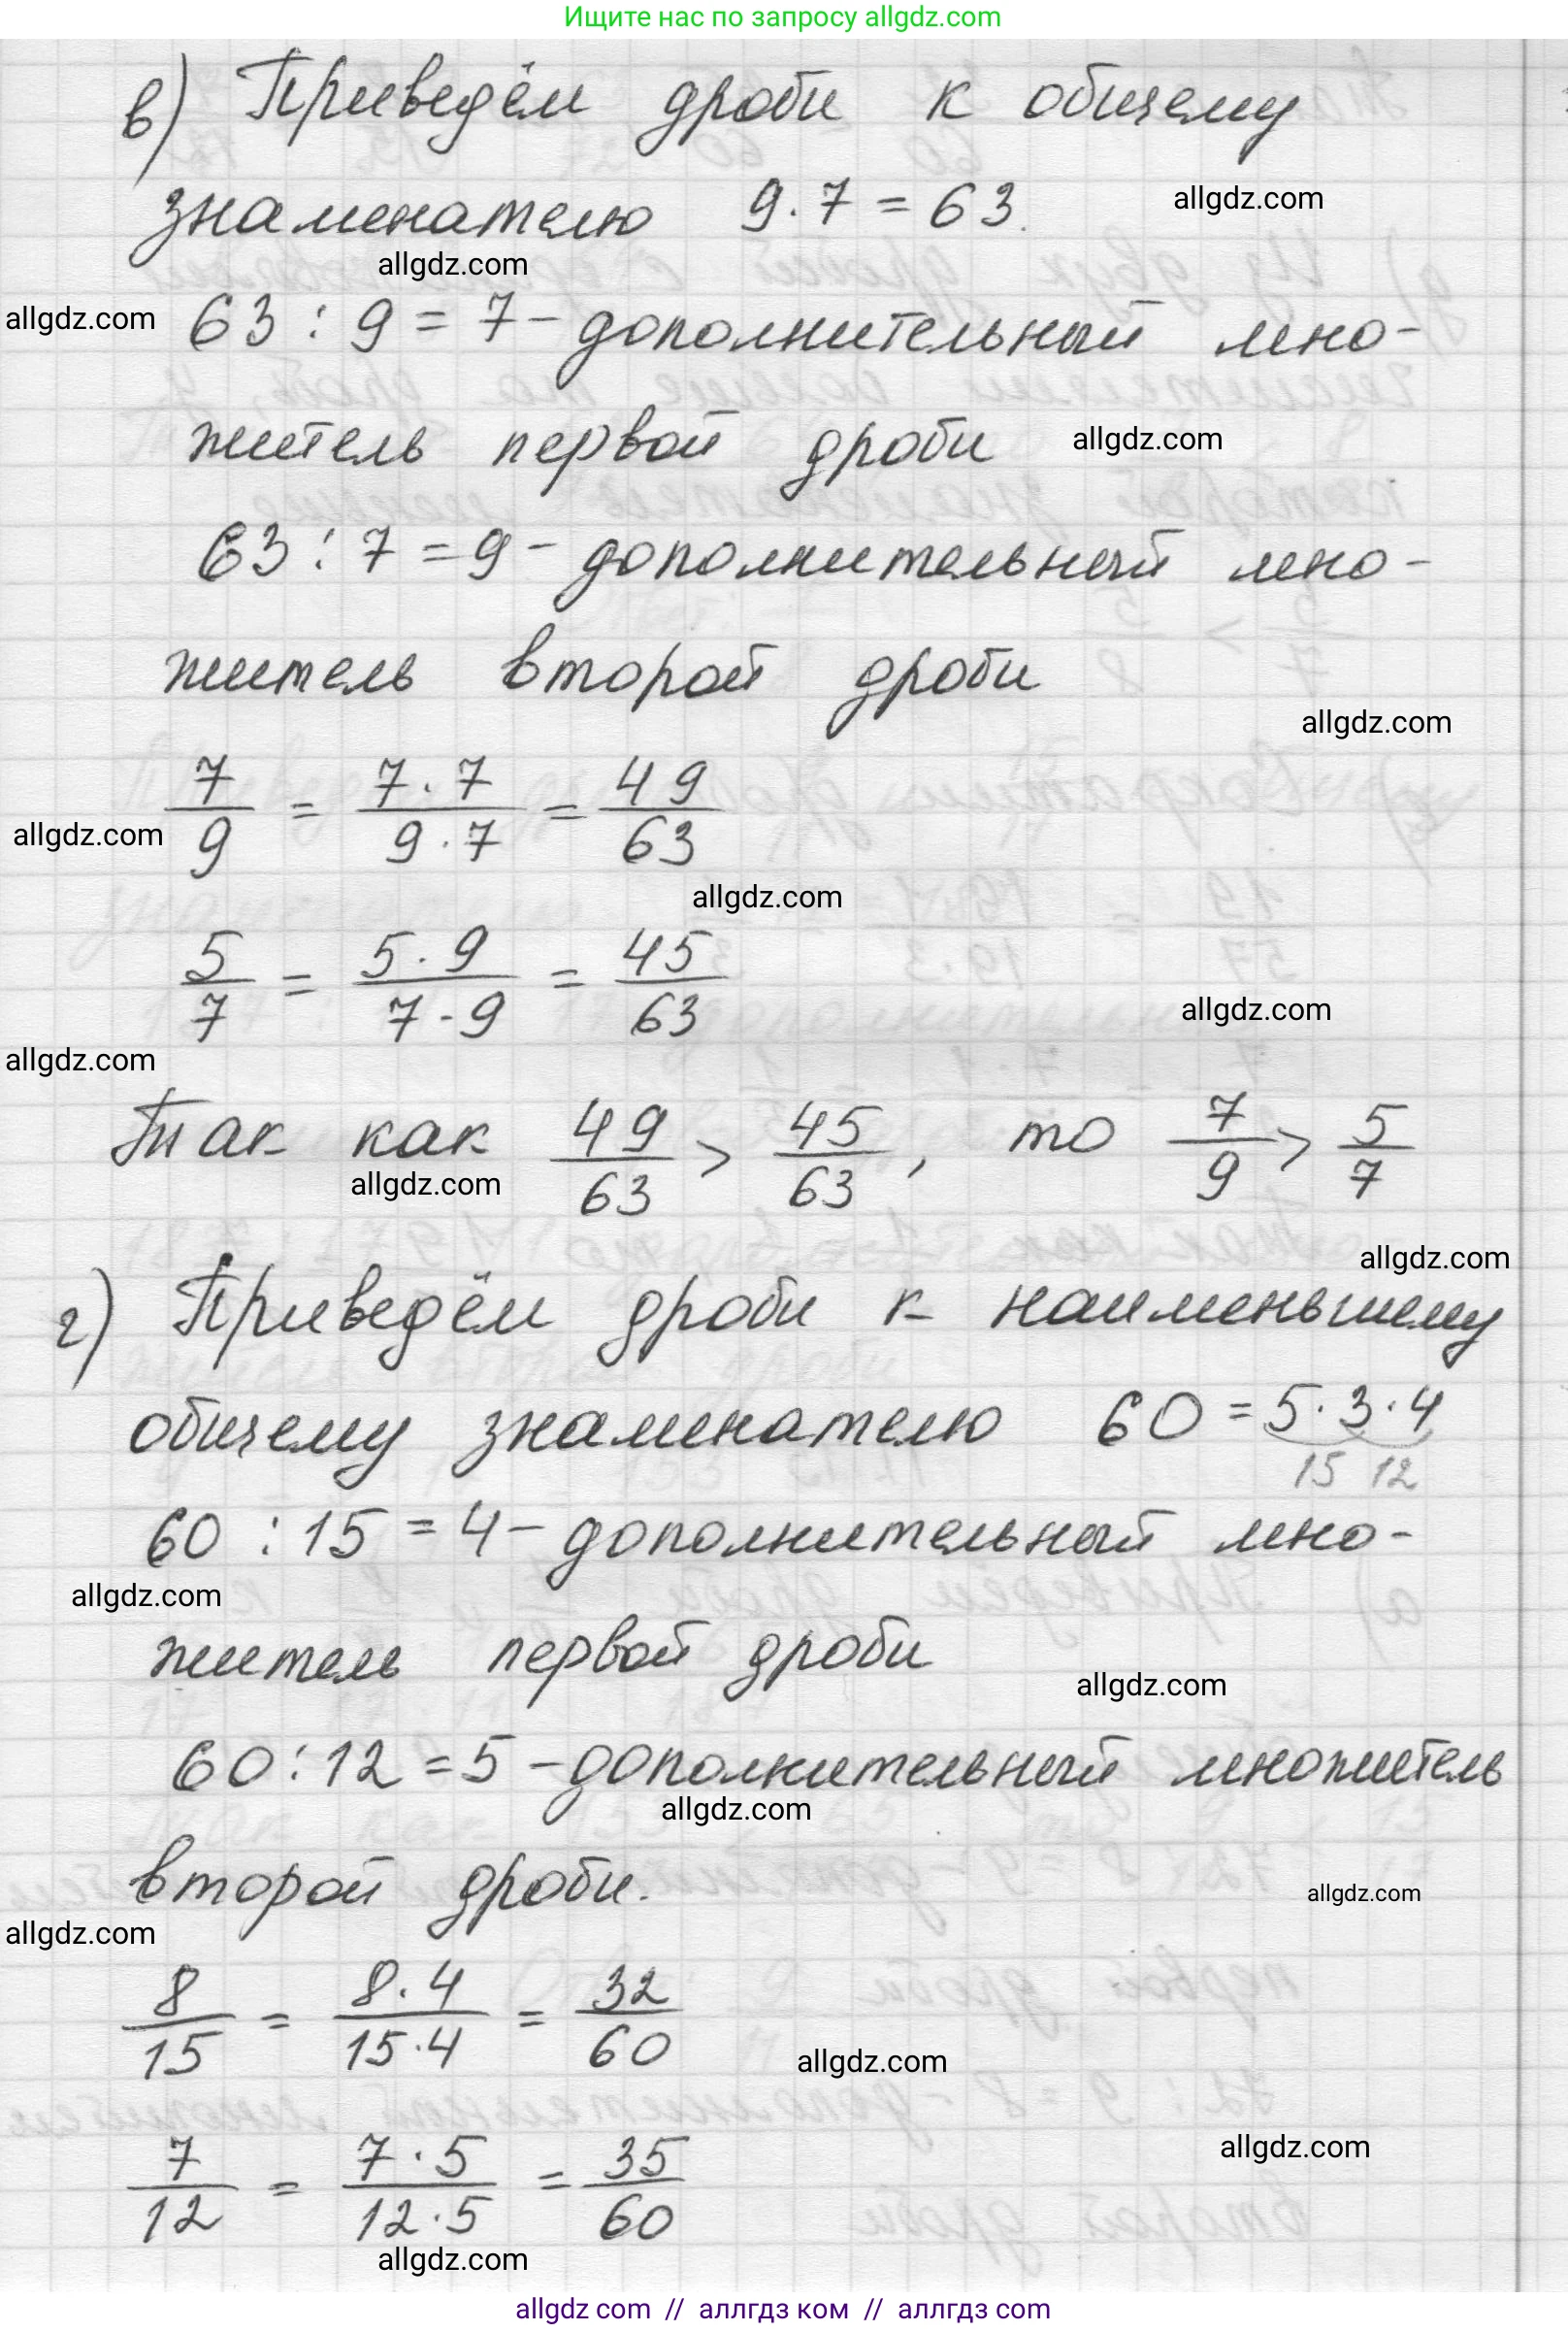 Ищите нас по запросу allgdz.com
в) Приведём дроби к общему
знаменателю 9·7=63.
allgdz.com
allgdz.com
allgdz.com
63:9=7 – дополнительный мно-
житель первой дроби
allgdz.com
63:7=9 – дополнительный мно-
житель второй дроби
allgdz.com
7/9 = 7·7/9·7 = 49/63
allgdz.com
allgdz.com
5/7 = 5·9/7·9 = 45/63
allgdz.com
allgdz.com
Так как 49/63 > 45/63, то 7/9 > 5/7
allgdz.com
allgdz.com
г) Приведём дроби к наименьшему
общему знаменателю 60=5·3·4
15 12
60:15=4 – дополнительный мно-
allgdz.com
житель первой дроби
allgdz.com
60:12=5 – дополнительный множитель
allgdz.com
второй дроби.
allgdz.com
allgdz.com
8/15 = 8·4/15·4 = 32/60
allgdz.com
7/12 = 7·5/12·5 = 35/60
allgdz.com
allgdz.com
allgdz com // аллгдз ком // аллгдз com